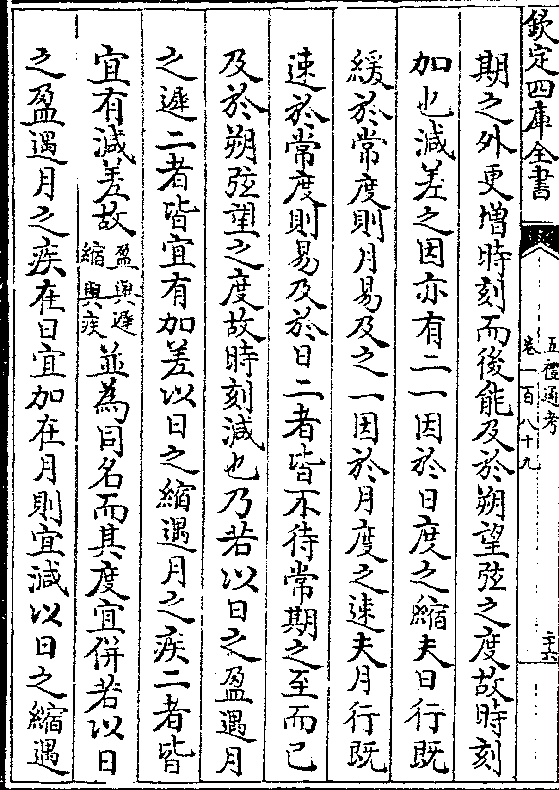 欽定四庫全書
五禮通考
卷一百八十九
二十六
期之外更增時刻而後能及於朔望弦之度故時刻
加也減差之因亦有二一因於日度之縮夫日行既
緩於常度則月易及之一因於月度之速夫月行既
速於常度則易及於日二者皆不待常期之至而已
及於朔弦望之度故時刻減也乃若以日之盈遇月
之遲二者皆宜有加差以日之縮遇月之疾二者皆
宜有減差故盈與遲縮與疾並為同名而其度宜併若以日
之盈遇月之疾在日宜加在月則宜減以日之縮遇